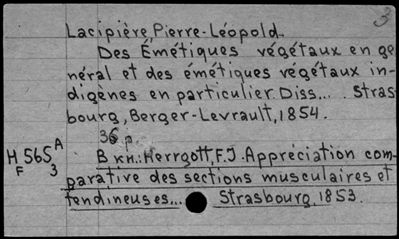 3
Lacipière, Pierre-Léopold.
Des Émétiques végétaux en gé
néral et des émétiques végétaux in-
digènes en particulier. Diss... Stras-
bourg, Berger-Levrault, 1854.
36 p.
H 565 A
F 3
В кн.: Herrgott, F.J. Appréciation com-
parative des sections musculaires et
tendineuses... Strasbourg, 1853.